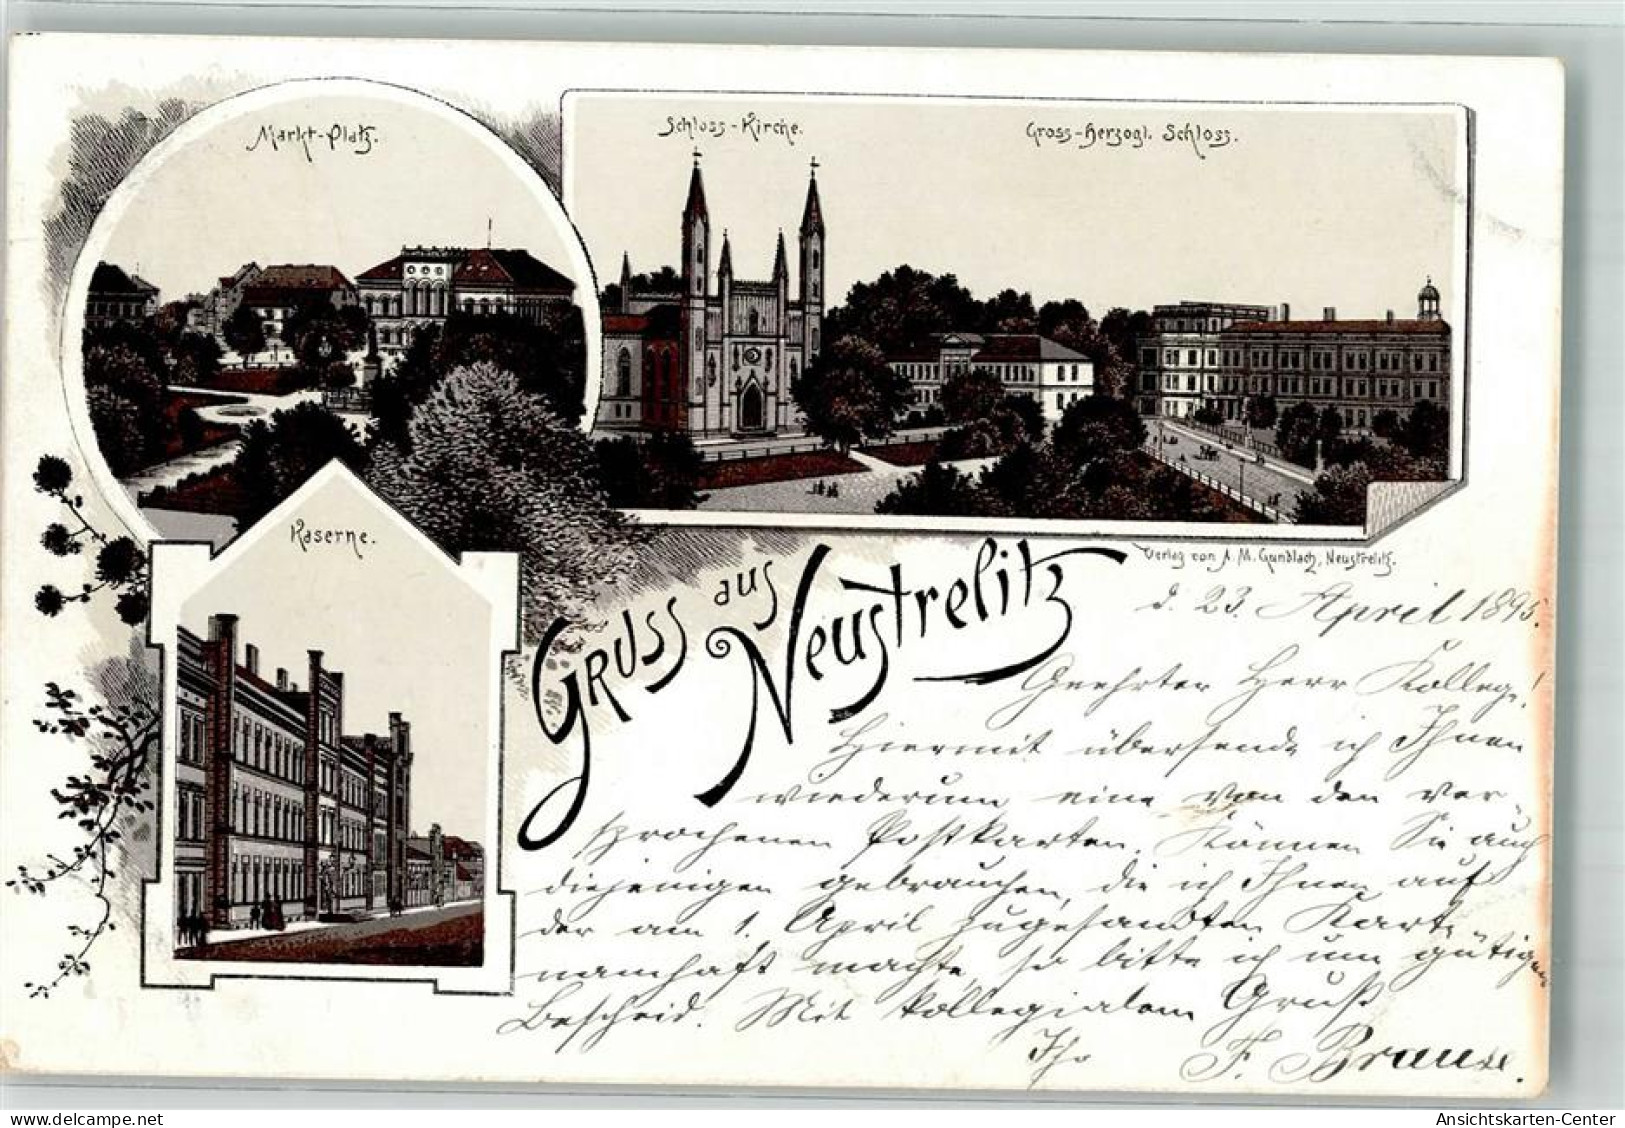 Markt-Platz.
Schloss-Kirche.
Gross-Herzogl. Schloss.
Kaserne.
Gruss aus Neustrelitz
Verlag von A. M. Gundlach, Neustrelitz.
d. 23. April 1895.
Geehrter Herr Kollege!
Hiermit übersende ich Ihnen
wiederum eine von den ver-
sprochenen Postkarten. Können Sie auch
diejenigen gebrauchen, die ich Ihnen auf
der am 1. April zugesandten Karte
namhaft machte, so bitte ich um gütigen
Bescheid. Mit kollegialem Gruß
Ihr F. Brause.
Ansichtskarten-Center